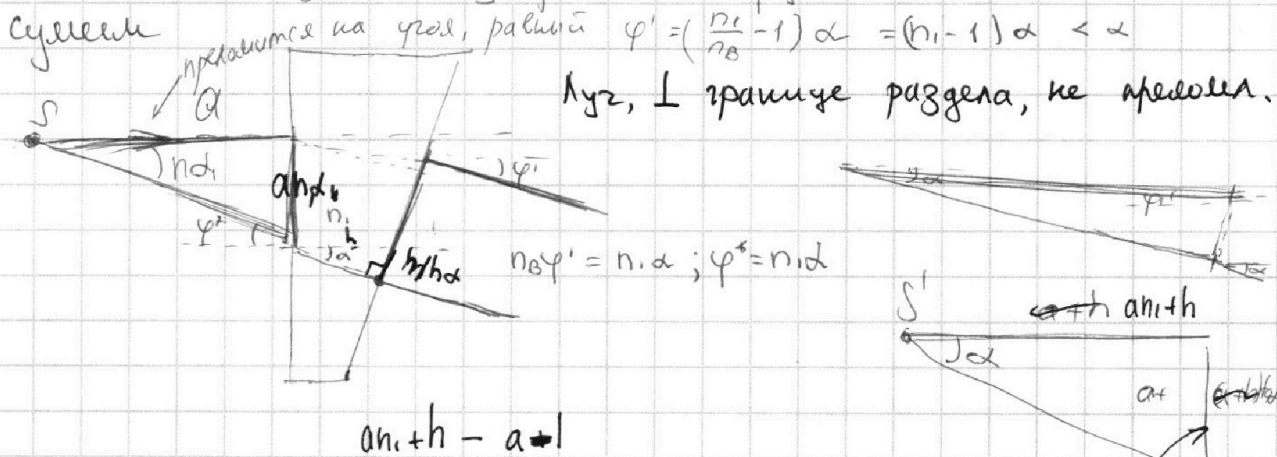 сумеем
преломится на угол, равный φ' = (n₁/nв - 1) α = (n₁ - 1) α < α
Луч, ⊥ границе раздела, не преломл.
S
a
nα₁
an₁α
φ'
2α
φ'
n₁
h
α
nвφ' = n₁α ; φ* = n₁α
α
S'
an₁+h
α
a+
an₁+h - a